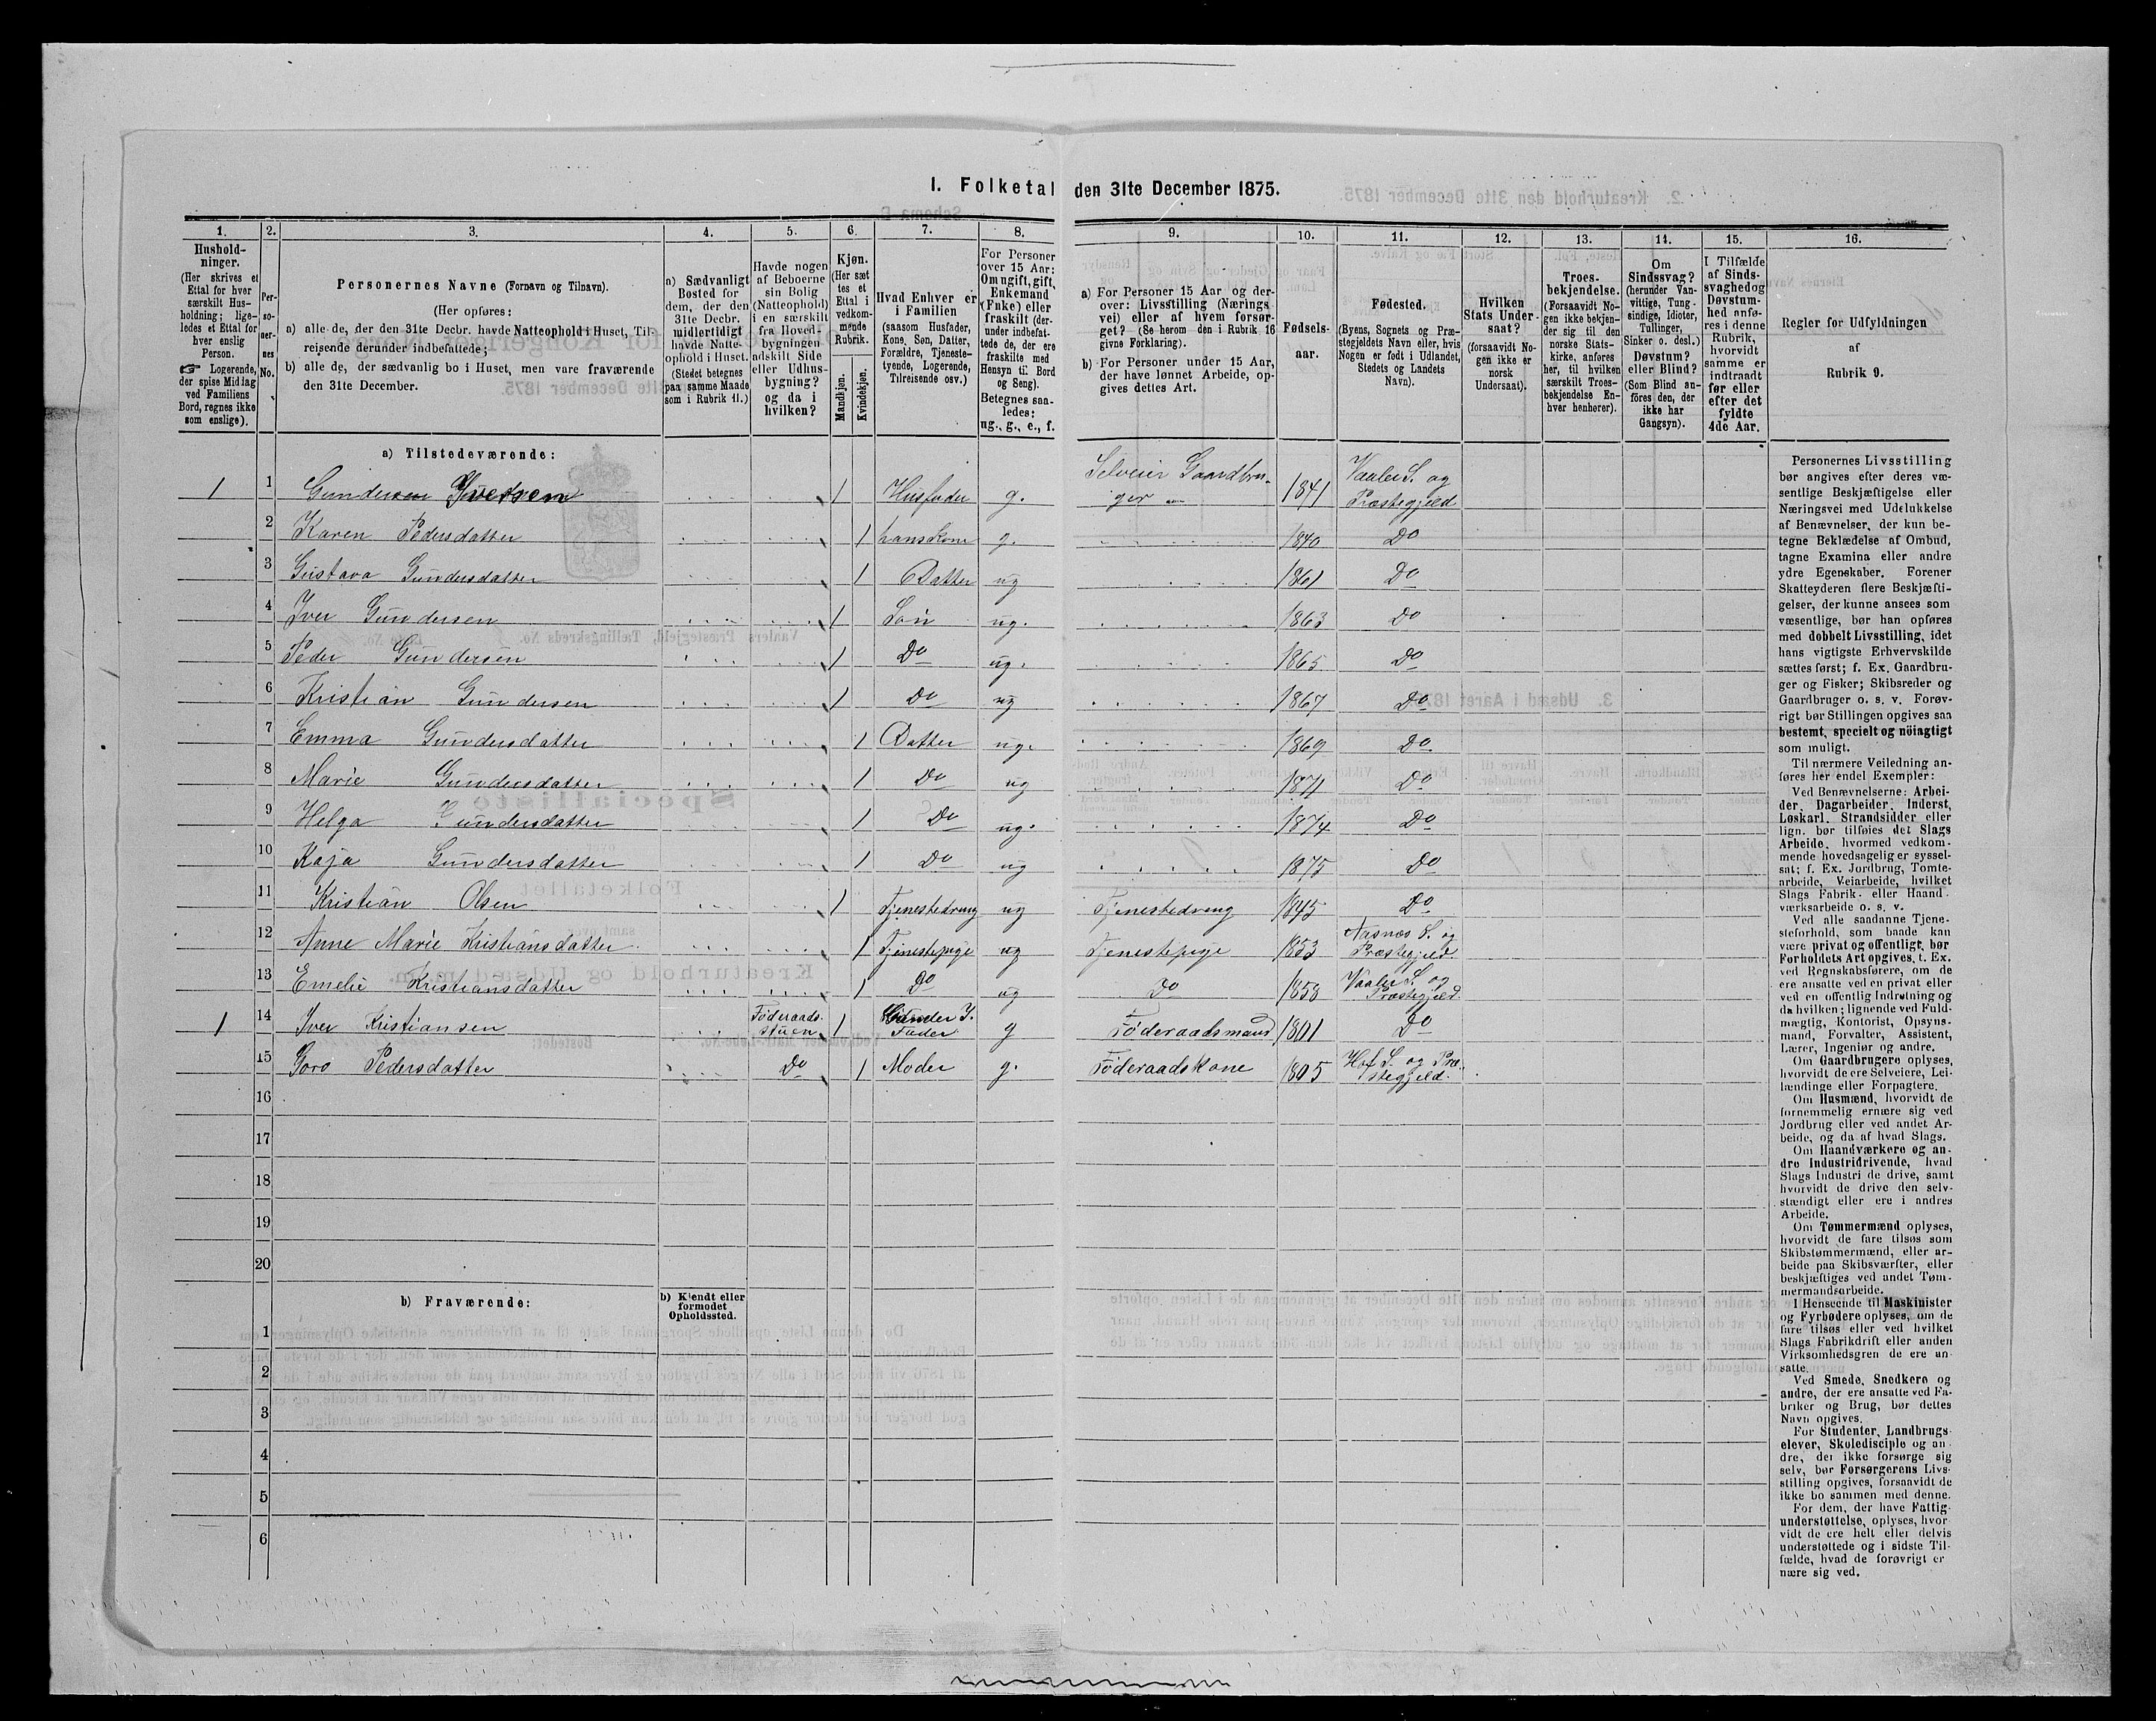 1. Folketal den 31te December 1875.
1.
2.
3.
4.
5.
6.
7.
8.
9.
10.
11.
12.
13.
14.
15.
16.
Hushold-
ninger.
(Her skrives et
Ettal for hver
særskilt Hus-
holdning; lige-
ledes et Ettal for
hver enslig
Person.
☞ Logerende,
der spise Middag
ved Familiens
Bord, regnes ikke
som enslige).
Per-
so-
ner-
nes
No.
Personernes Navne (Fornavn og Tilnavn).
(Her opføres:
a) alle de, der den 31te Decbr. havde Natteophold i Huset, Til-
reisende derunder indbefattede;
b) alle de, der sædvanlig bo i Huset, men vare fraværende
den 31te December.
a) Sædvanligt
Bosted for
dem, der den
31te Decbr.
midlertidigt
havde Natte-
ophold i Huset.
(Stedet betegnes
paa samme Maade
som i Rubrik 11.)
Havde nogen
af Beboerne
sin Bolig
(Natteophold)
i en særskilt
fra Hoved-
bygningen
adskilt Side
eller Udhus-
bygning?
og da i
hvilken?
Kjøn.
(Her sæt
tes et
Ettal i
vedkom-
mende
Rubrik.
Mandkjøn.
Kvindekjøn.
Hvad Enhver er
i Familien
(saasom Husfader,
Kone, Søn, Datter,
Forældre, Tjeneste-
tyende, Logerende,
Tilreisende osv.)
For Personer
over 15 Aar:
Om ugift, gift,
Enkemand
(Enke) eller
fraskilt (der-
under indbefat-
tede de, der ere
fraskilte med
Hensyn til Bord
og Seng).
Betegnes saa-
ledes:
ug., g., e., f.
a) For Personer 15 Aar og der-
over: Livsstilling (Nærings
vei) eller af hvem forsør-
get? (Se herom den i Rubrik 16
givne Forklaring).
b) For Personer under 15 Aar,
der have lønnet Arbeide, op-
gives dettes Art.
Fødsels-
aar.
Fødested.
(Byens, Sognets og Præ-
stegjeldets Navn eller, hvis
Nogen er født i Udlandet,
Stedets og Landets
Navn).
Hvilken
Stats Under-
saat?
(forsaavidt No-
gen ikke er
norsk
Undersaat).
Troes-
bekjendelse.
(Forsaavidt No-
gen ikke bekjen-
der sig til den
norske Stats-
kirke, anføres
her, til hvilken
særskilt Troes-
bekjendelse En-
hver henhører).
Om
Sindssvag?
(herunder Van-
vittige, Tung-
sindige, Idioter,
Tullinger,
Sinker o. desl.)
Døvstum?
eller Blind?
(Som Blind an-
føres den, der
ikke har
Gangsyn).
I Tilfælde
af Sinds-
svaghed og
Døvstum-
hed anfø-
res i denne
Rubrik,
hvorvidt
samme er
indtraadt
før eller
efter det
fyldte
4de Aar.
Regler for Udfyldningen
af
Rubrik 9.
a) Tilstedeværende:
1 1 Gundersen Iversen 1 Husfader g. Selveier Gaardbru-
ger 1841 Vaaler S. og
Præstegjeld
2 Karen Pedersdatter 1 hans Kone g. 1840 Do
3 Gustava Gundersdatter 1 Datter ug 1861 Do
4 Iver Gundersen 1 Søn ug. 1863 Do
5 Peder Gundersen 1 Do ug. 1865 Do
6 Kristian Gundersen 1 Do ug 1867 Do
7 Emma Gundersdatter 1 Datter ug. 1869 Do
8 Marie Gundersdatter 1 Do ug 1871 Do
9 Helga Gundersdatter 1 Do ug. 1874 Do
10 Kaja Gundersdatter 1 Do ug 1875 Do
11 Kristian Olsen 1 Tjenestedreng ug Tjenestedreng 1845 Do
12 Anne Marie Kristiansdatter 1 Tjenestepige ug Tjenestepige 1853 Aasnæs S. og
Præstegjeld
13 Emelie Kristiansdatter 1 Do ug Do 1858 Vaaler S. og
Præstegjeld.
1 14 Iver Kristiansen Føderaads-
stuen 1 Gunder I.
Fader g Føderaadsmand 1801 Do
15 Goro Pedersdatter Do 1 Moder g. Føderaadskone 1805 Hof S. og Præ-
stegjeld.
16
17
18
19
20
b) Fraværende:
b) Kjendt eller
formodet
Opholdssted.
1
2
3
4
5
6
Personernes Livsstilling
bør angives efter deres væ-
sentlige Beskjæftigelse eller
Næringsvei med Udelukkelse
af Benævnelser, der kun be-
tegne Beklædelse af Ombud,
tagne Examina eller andre
ydre Egenskaber. Forener
Skatteyderen flere Beskjæfti-
gelser, der kunne ansees som
væsentlige, bør han opføres
med dobbelt Livsstilling, idet
hans vigtigste Erhvervskilde
sættes først; f. Ex. Gaardbru-
ger og Fisker; Skibsreder og
Gaardbruger o. s. v. Forøv-
rigt bør Stillingen opgives saa
bestemt, specielt og nöiagtigt
som muligt.
Til nærmere Veiledning an-
føres her endel Exempler:
Ved Benævnelserne: Arbei-
der, Dagarbeider, Inderst,
Løskarl, Strandsidder eller
lign. bør tilføies det Slags
Arbeide, hvormed vedkom-
mende hovedsagelig er syssel-
sat; f. Ex. Jordbrug, Tomte-
arbeide, Veiarbeide, hvilket
Slags Fabrik- eller Haand-
værksarbeide o. s. v.
Ved alle saadanne Tjene-
steforhold, som baade kan
være privat og offentligt, bør
Forholdets Art opgives, t. Ex.
ved Regnskabsførere, om de
ere ansatte ved en privat eller
ved en offentlig Indretning og
da hvilken; lignende ved Fuld-
mægtig, Kontorist, Opsyns-
mand, Forvalter, Assistent,
Lærer, Ingeniør og andre.
Om Gaardbrugere oplyses,
hvorvidt de ere Selveiere, Lei-
lændinge eller Forpagtere.
Om Husmænd, hvorvidt de
fornemmelig ernære sig ved
Jordbrug eller ved andet Ar-
beide, og da af hvad Slags.
Om Haandværkere og an-
dre Industridrivende, hvad
Slags Industri de drive, samt
hvorvidt de drive den selv-
stændigt eller ere i andres
Arbeide.
Om Tømmermænd oplyses,
hvorvidt de fare tilsøs som
Skibstømmermænd, eller ar-
beide paa Skibsværfter, eller
beskjæftiges ved andet Tøm-
mermandsarbeide.
I Henseende til Maskinister
og Fyrbødere oplyses, om de
fare tilsøs eller ved hvilket
Slags Fabrikdrift eller anden
Virksomhedsgren de ere an-
satte.
Ved Smede, Snedkere og
andre, der ere ansatte ved Fa-
briker og Brug, bør dettes
Navn opgives.
For Studenter, Landbrugs-
elever, Skoledisciple og an-
dre, der ikke forsørge sig
selv, bør Forsørgerens Livs-
stilling opgives, forsaavidt de
ikke bo sammen med denne.
For dem, der have Fattig-
understøttelse, oplyses, hvor-
vidt de ere helt eller delvis
understøttede og i sidste Til-
fælde, hvad de forøvrigt er
nære sig ved.